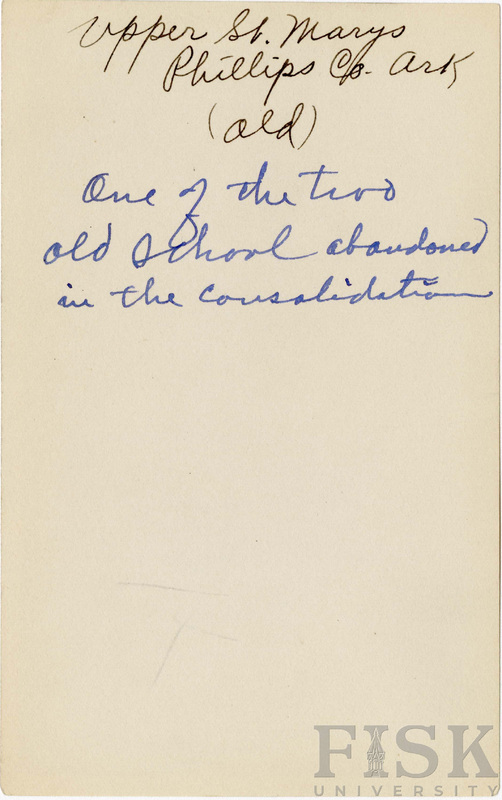 Upper St. Marys
Phillips Co. Ark
(old)
One of the two
old School abandoned
in the consalidation
FISK
UNIVERSITY